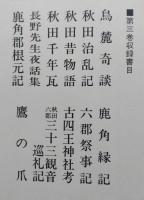 ■第三巻収録書目
鳥麓奇談
秋田治乱記
秋田昔物語
秋田千年瓦
長野先生夜話集
鹿角郡根元記
鹿角縁記
六郡祭事記
古四王神社考
秋田六郡三十三観音巡礼記
鷹の爪